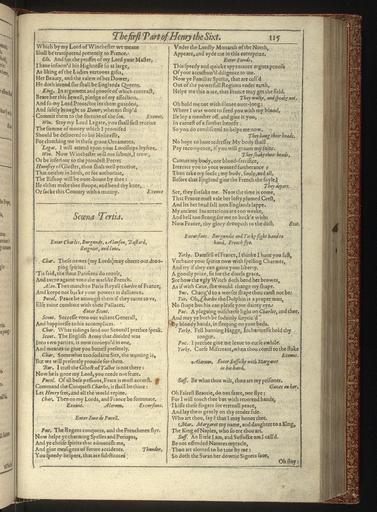 The first Part of Henry the Sixt. 115
Which by my Lord of Winchester we meane
Shall be transported presently to France.
Glo. And for the proffer of my Lord your Master,
I haue inform'd his Highnesse so at large,
As liking of the Ladies vertuous gifts,
Her Beauty, and the valew of her Dower,
He doth intend she shall be Englands Queene.
King. In argument and proofe of which contract,
Beare her this Iewell, pledge of my affection.
And so my Lord Protector see them guarded,
And safely brought to Douer, wherein ship'd
Commit them to the fortune of the sea. Exeunt.
Win. Stay my Lord Legate, you shall first receiue
The summe of money which I promised
Should be deliuered to his Holinesse,
For cloathing me in these graue Ornaments.
Legat. I will attend vpon your Lordships leysure.
Win. Now Winchester will not submit, I trow,
Or be inferiour to the proudest Peere:
Humfrey of Gloster, thou shalt well perceiue,
That neither in birth, or for authoritie,
The Bishop will be ouer-borne by thee:
Ile either make thee stoope, and bend thy knee,
Or sacke this Country with a mutiny. Exeunt
Scœna Tertia.
Enter Charles, Burgundy, Alanson, Bastard,
Reignier, and Ione.
Char. These newes (my Lords) may cheere our droo-
ping spirits:
'Tis said, the stout Parisians do reuolt,
And turne againe vnto the warlike French.
Alan. Then march to Paris Royall Charles of France,
And keepe not backe your powers in dalliance.
Pucel. Peace be amongst them if they turne to vs,
Else ruine combate with their Pallaces.
Enter Scout.
Scout. Successe vnto our valiant Generall,
And happinesse to his accomplices.
Char. What tidings send our Scouts? I prethee speak.
Scout. The English Army that diuided was
Into two parties, is now conioyn'd in one,
And meanes to giue you battell presently.
Char. Somewhat too sodaine Sirs, the warning is,
But we will presently prouide for them.
Bur. I trust the Ghost of Talbot is not there:
Now he is gone my Lord, you neede not feare.
Pucel. Of all base passions, Feare is most accurst.
Command the Conquest Charles, it shall be thine:
Let Henry fret, and all the world repine.
Char. Then on my Lords, and France be fortunate.
Exeunt. Alarum. Excursions.
Enter Ione de Pucell.
Puc. The Regent conquers, and the Frenchmen flye.
Now helpe ye charming Spelles and Periapts,
And ye choise spirits that admonish me,
And giue me signes of future accidents. Thunder.
You speedy helpers, that are substitutes
Vnder the Lordly Monarch of the North,
Appeare, and ayde me in this enterprize.
Enter Fiends.
This speedy and quicke appearance argues proofe
Of your accustom'd diligence to me.
Now ye Familiar Spirits, that are cull'd
Out of the powerfull Regions vnder earth,
Helpe me this once, that France may get the field.
They walke, and speake not.
Oh hold me not with silence ouer-long:
Where I was wont to feed you with my blood,
Ile lop a member off, and giue it you,
In earnest of a further benefit:
So you do condiscend to helpe me now.
They hang their heads.
No hope to haue redresse? My body shall
Pay recompence, if you will graunt my suite.
They shake their heads.
Cannot my body, nor blood-sacrifice,
Intreate you to your wonted furtherance?
Then take my soule; my body, soule, and all,
Before that England giue the French the foyle.
They depart.
See, they forsake me. Now the time is come,
That France must vale her lofty plumed Crest,
And let her head fall into Englands lappe.
My ancient Incantations are too weake,
And hell too strong for me to buckle with:
Now France, thy glory droopeth to the dust. Exit.
Excursions. Burgundie and Yorke fight hand to
hand. French flye.
Yorke. Damsell of France, I thinke I haue you fast,
Vnchaine your spirits now with spelling Charmes,
And try if they can gaine your liberty.
A goodly prize, fit for the diuels grace.
See how the vgly Witch doth bend her browes,
As if with Circe, she would change my shape.
Puc. Chang'd to a worser shape thou canst not be:
Yor. Oh, Charles the Dolphin is a proper man,
No shape but his can please your dainty eye.
Puc. A plaguing mischeefe light on Charles, and thee,
And may ye both be sodainly surpriz'd
By bloudy hands, in sleeping on your beds.
Yorke. Fell banning Hagge, Inchantresse hold thy
tongue.
Puc. I prethee giue me leaue to curse awhile.
Yorke. Curse Miscreant, when thou comst to the stake
Exeunt.
Alarum. Enter Suffolke with Margaret
in his hand.
Suff. Be what thou wilt, thou art my prisoner.
Gazes on her.
Oh Fairest Beautie, do not feare, nor flye:
For I will touch thee but with reuerend hands,
I kisse these fingers for eternall peace,
And lay them gently on thy tender side.
Who art thou, say? that I may honor thee.
Mar. Margaret my name, and daughter to a King,
The King of Naples, who so ere thou art.
Suff. An Earle I am, and Suffolke am I call'd.
Be not offended Natures myracle,
Thou art alotted to be tane by me:
So doth the Swan her downie Signets saue,
Oh stay: